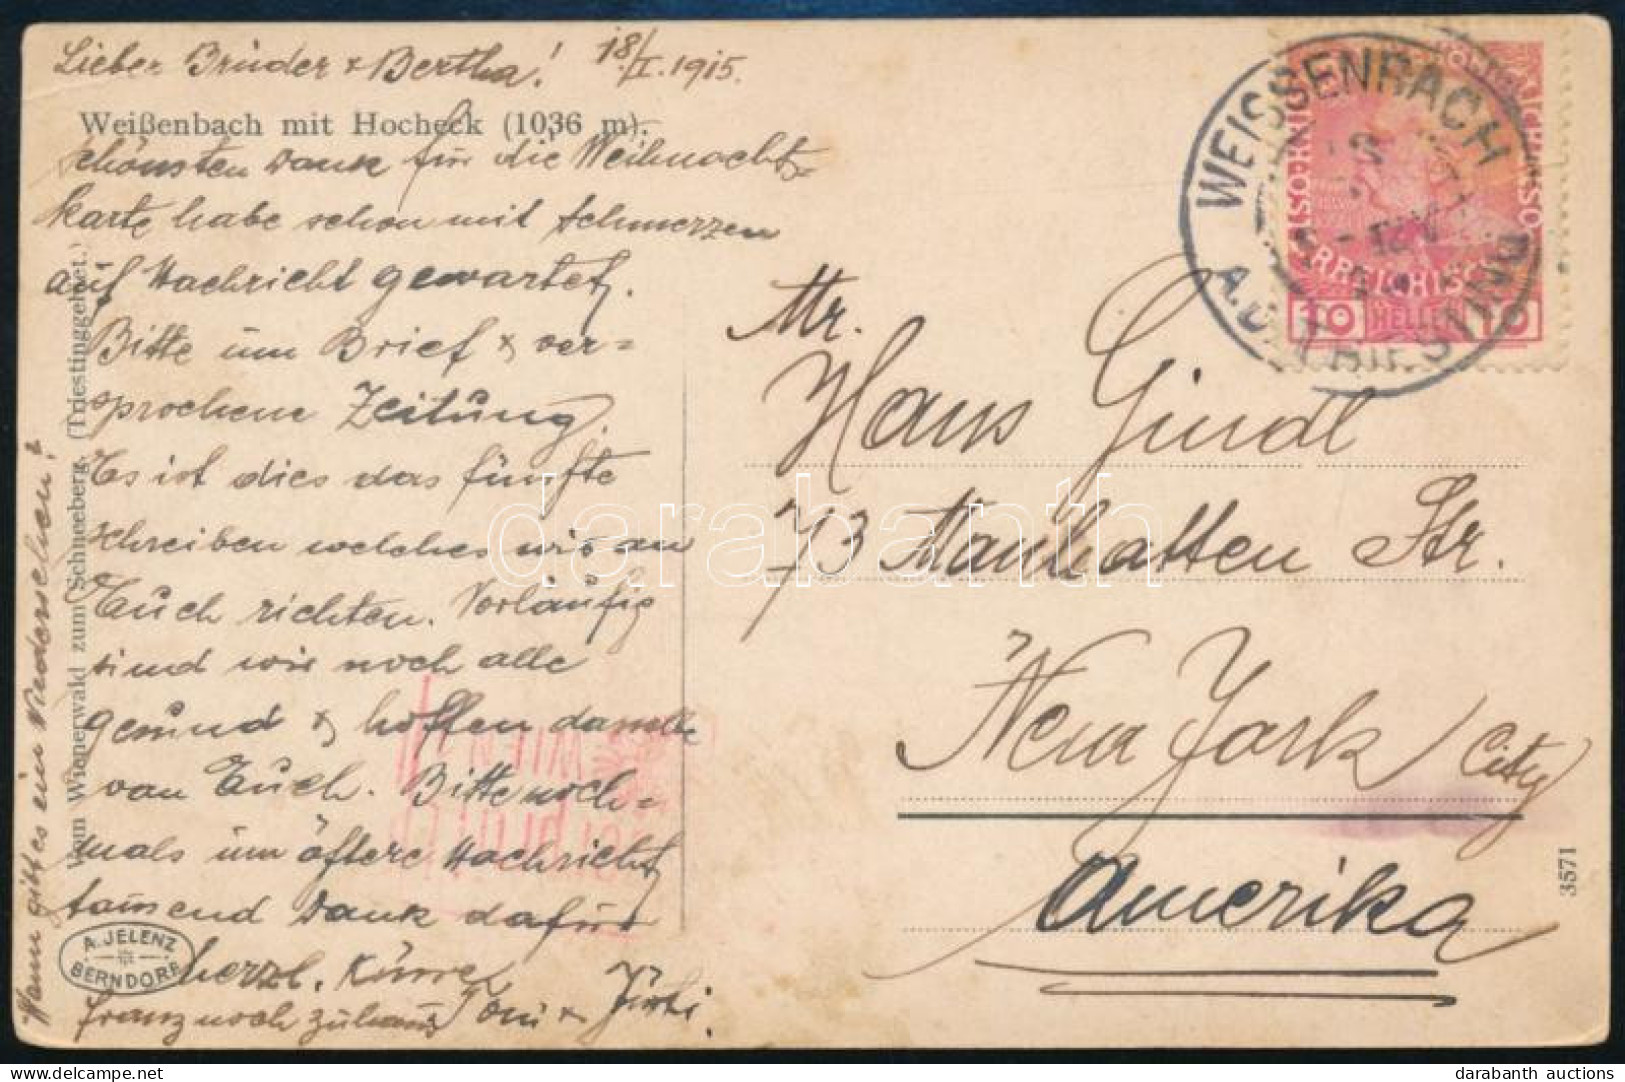 Lieber Brüder & Bertha! 18./I. 1915.
Weißenbach mit Hocheck (1036 m).
schönsten Dank für die Weihnachts-
karte habe schon mit Schmerzen
auf Nachricht gewartet.
Bitte um Brief & ver=
sprochene Zeitung.
Es ist dies das fünfte
schreiben welches wir an
Euch richten. Vorläufig
sind wir noch alle
gesund & hoffen dasselbe
von Euch. Bitte noch=
mals um öftere Nachricht
tausend Dank dafür
herzl. Küsse
Franz noch zuhaus Toni &
Wann gibt es ein Wiedersehen?
Vom Wienerwald zum Schneeberg. (Triestinggebiet.)
A. JELENZ
BERNDORF
WIEN
Mr.
Hans Gindl
73 Manhatten Str.
New York City
Amerika
3571
WEISSENBACH
A.D. TRIESTING
10 HELLER 10
darabanth
darabanth auctions